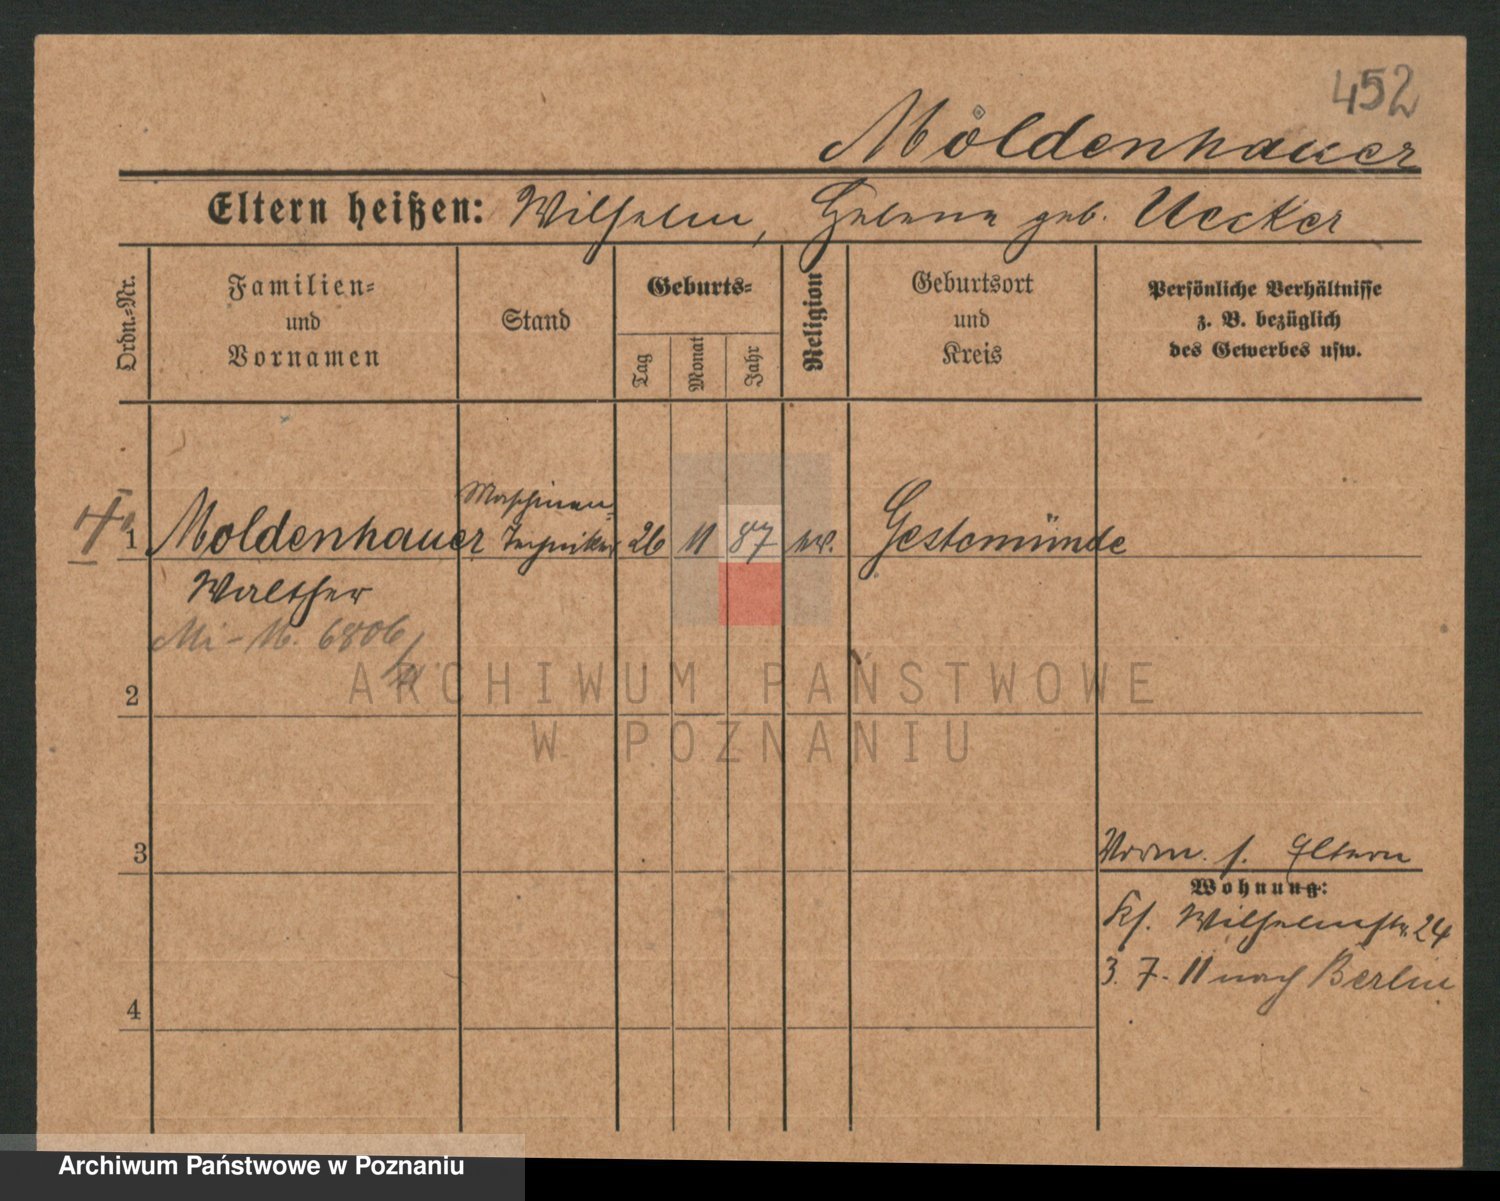 452
Moldenhauer
Eltern heißen: Wilhelm, Helene geb. Uecker
Ordn.-Nr.
Familien-
und
Vornamen
Stand
Geburts-
Tag
Monat
Jahr
Religion
Geburtsort
und
Kreis
Persönliche Verhältnisse
z. B. bezüglich
des Gewerbes usw.
Maschinen-
1 Moldenhauer Techniker 26 11 87 ev. Gestemünde
Walther
6806
2
ARCHIWUM PAŃSTWOWE
W POZNANIU
3
Vorm. s. Eltern
Wohnung:
Wilhelmstr. 24
3. 7. 11 nach Berlin
4
Archiwum Państwowe w Poznaniu